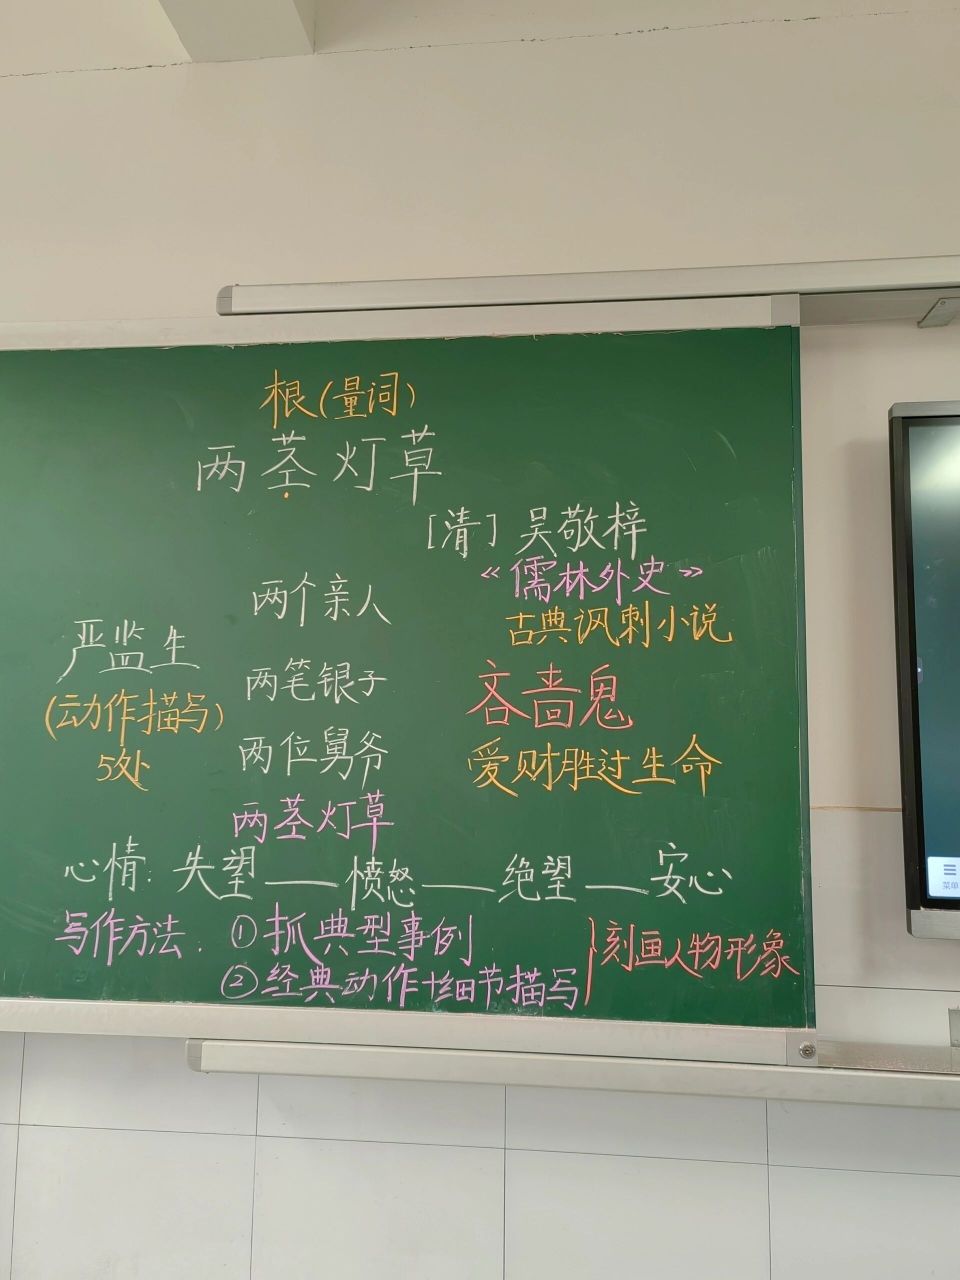 根(量词)
两茎灯草
[清]吴敬梓
《儒林外史》
古典讽刺小说
严监生
(动作描写)
5处
两个亲人
两笔银子
两位舅爷
两茎灯草
吝啬鬼
爱财胜过生命
心情:失望——愤怒——绝望——安心
写作方法:①抓典型事例
②经典动作+细节描写
}刻画人物形象
菜单